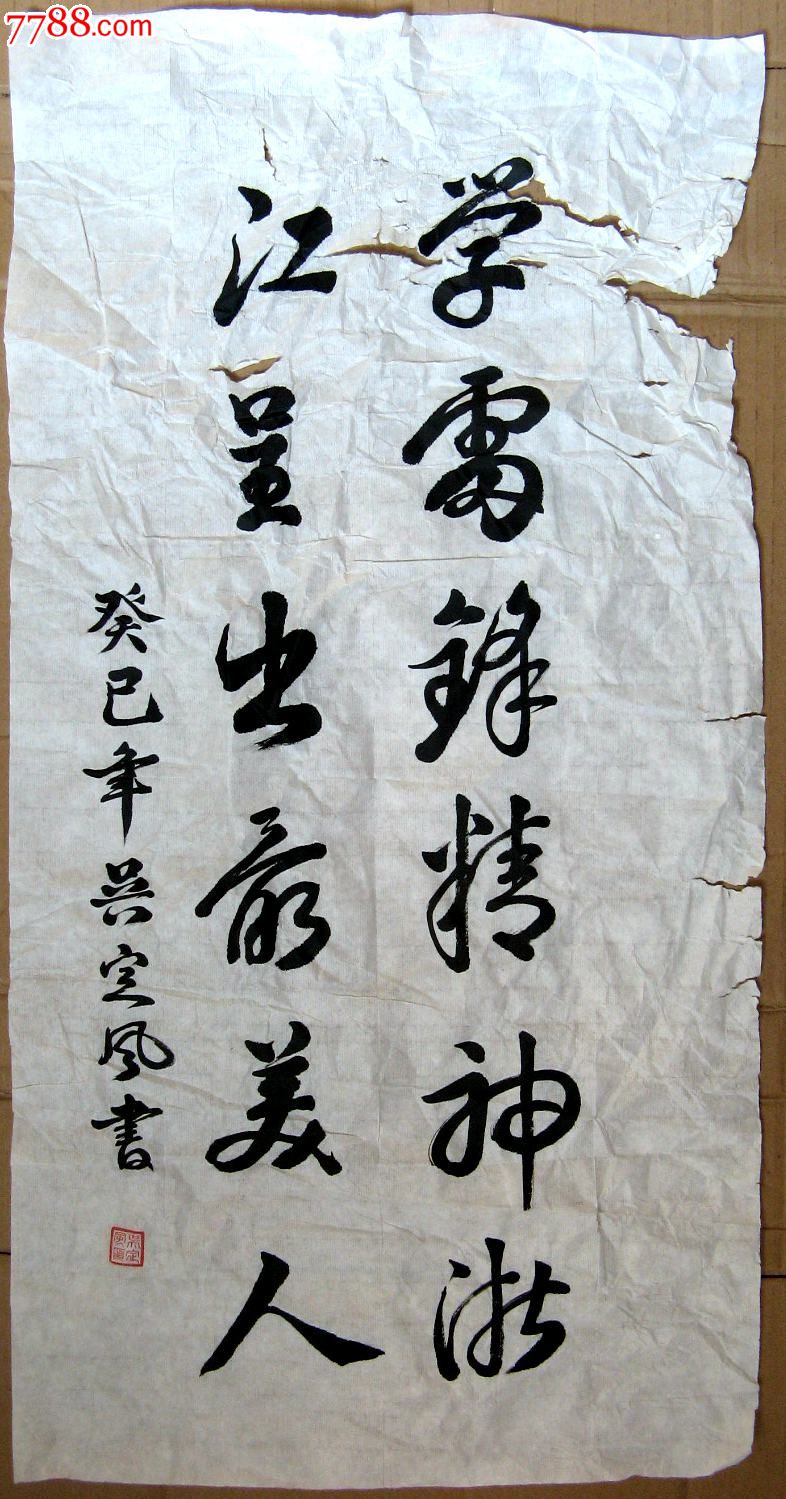 7788.com
学雷锋精神浙
江呈出最美人
癸巳年吴定风书